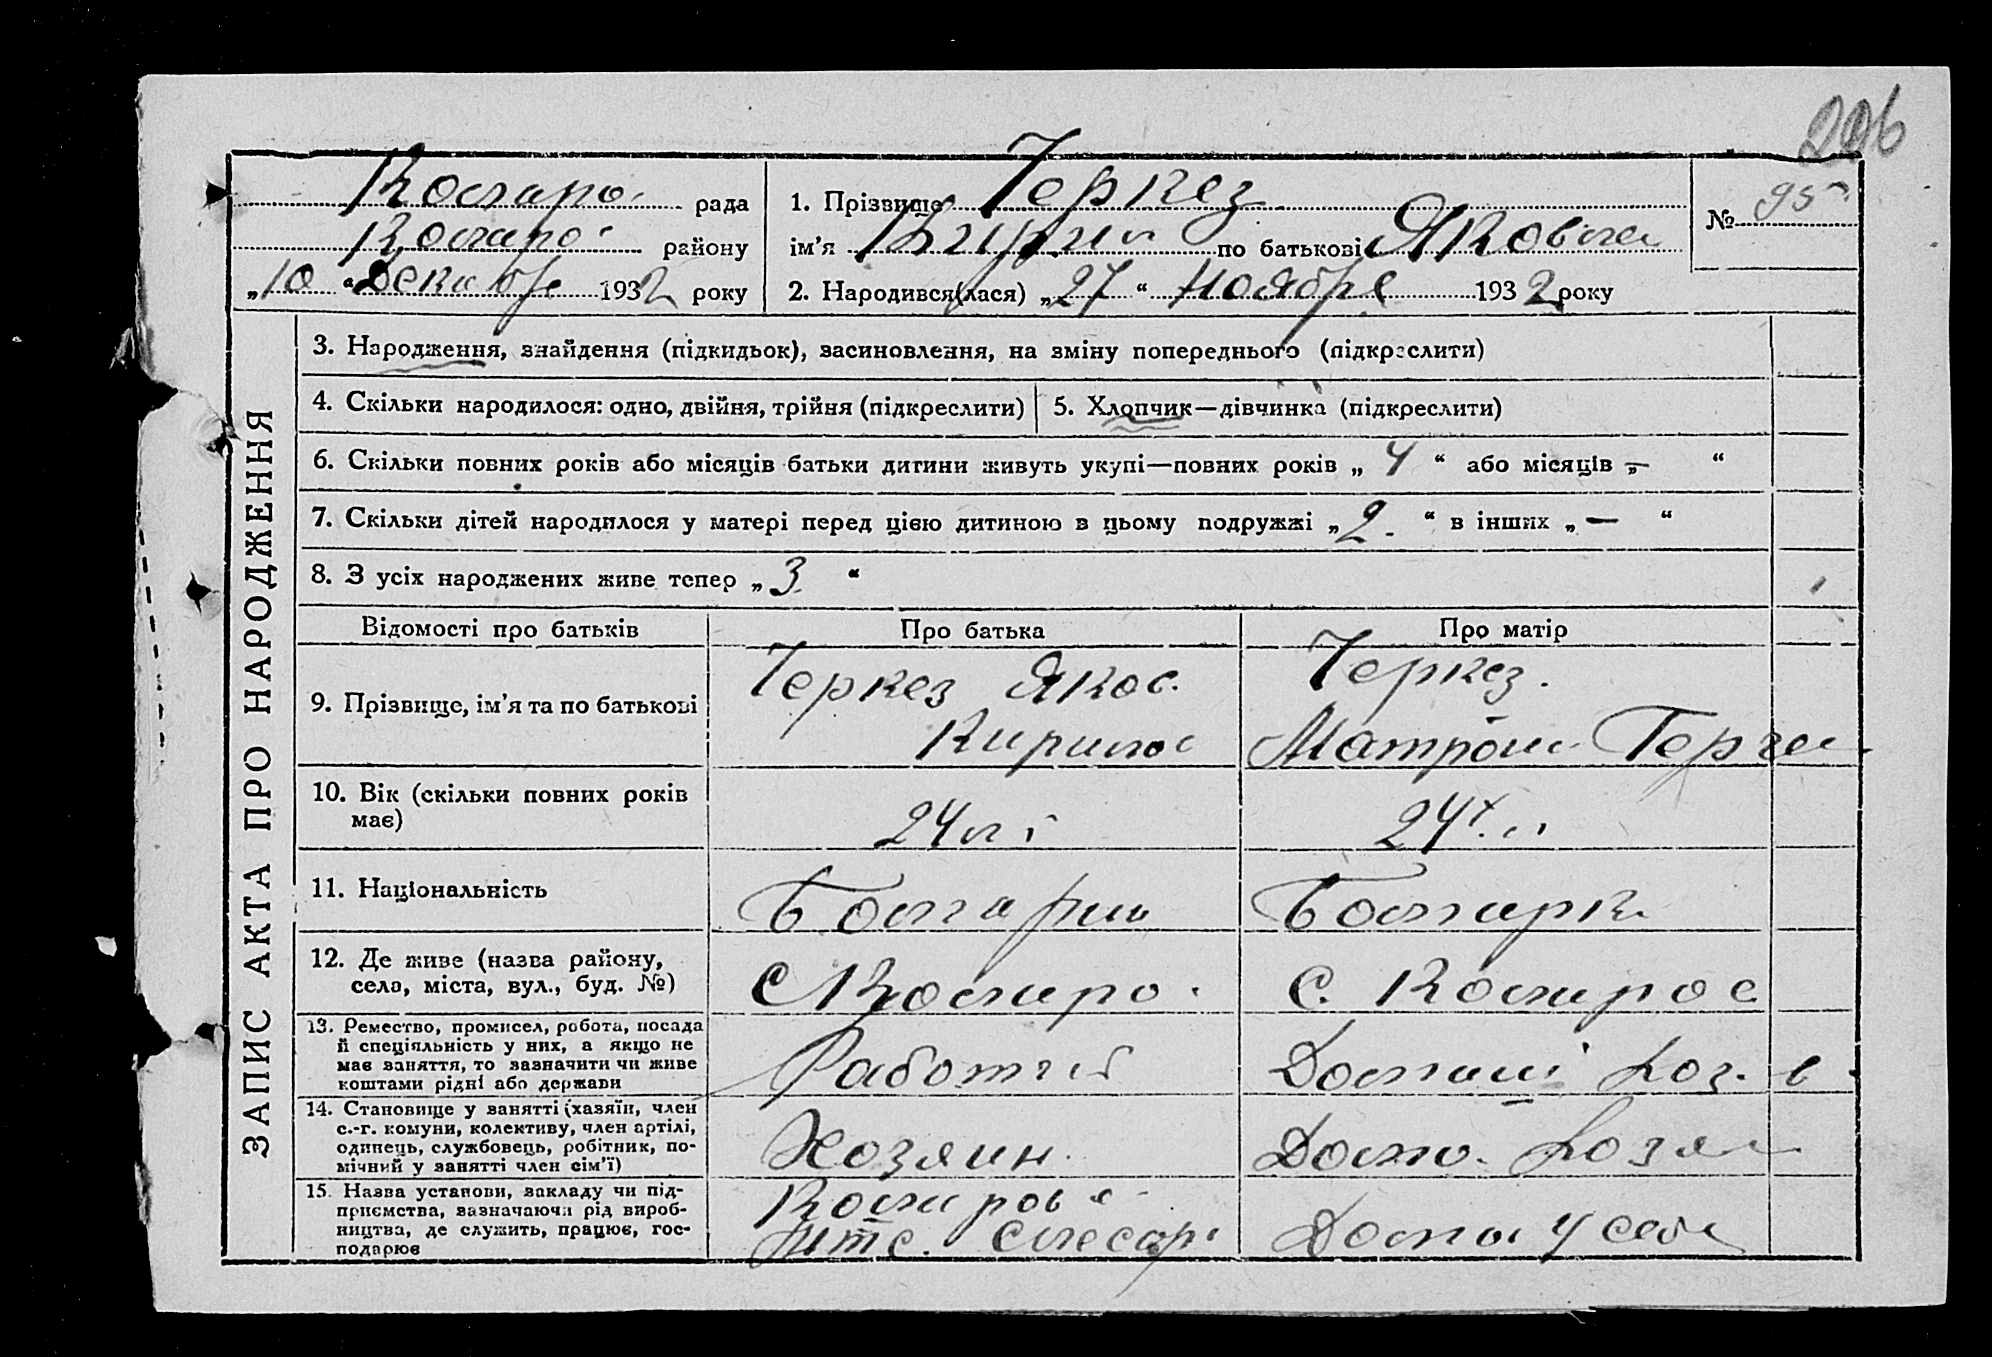 206
Коларо рада
Коларо району
„10“ Декабр 1932 року
1. Прізвище Черкез
ім’я Кирил по батькові Яковл
2. Народився(лася) „27“ Ноября 1932 року
№ 95
ЗАПИС АКТА ПРО НАРОДЖЕННЯ
3. Народження, знайдення (підкидьок), засиновлення, на зміну попереднього (підкреслити)
4. Скільки народилося: одно, двійня, трійня (підкреслити) 5. Хлопчик—дівчинка (підкреслити)
6. Скільки повних років або місяців батьки дитини живуть укупі—повних років „ 4 “ або місяців „ — “
7. Скільки дітей народилося у матері перед цією дитиною в цьому подружжі „ 2. “ в інших „ — “
8. З усіх народжених живе тепер „ 3 “
Відомості про батьків Про батька Про матір
9. Прізвище, ім’я та по батькові
Черкез Яков
Кирилов
Черкез.
Матрона Герги
10. Вік (скільки повних років
має)
24 л
24 л
11. Національність
Болгарин
Болгарк
12. Де живе (назва району,
села, міста, вул., буд. №)
С Коларо
С. Коларов
13. Ремество, промисел, робота, посада
й спеціяльність у них, а якщо не
має заняття, то зазначити чи живе
коштами рідні або держави
Работчий
Домаш хоз.
14. Становище у занятті (хазяїн, член
с.-г. комуни, колективу, член артілі,
одинець, службовець, робітник, по-
мічний у занятті член сім’ї)
Хозяин
Дома. хозя
15. Назва установи, закладу чи під-
приємства, зазначаючи рід вироб-
ництва, де служить, працює, гос-
подарює
Коларов
мтс. слесар
Дома у себя